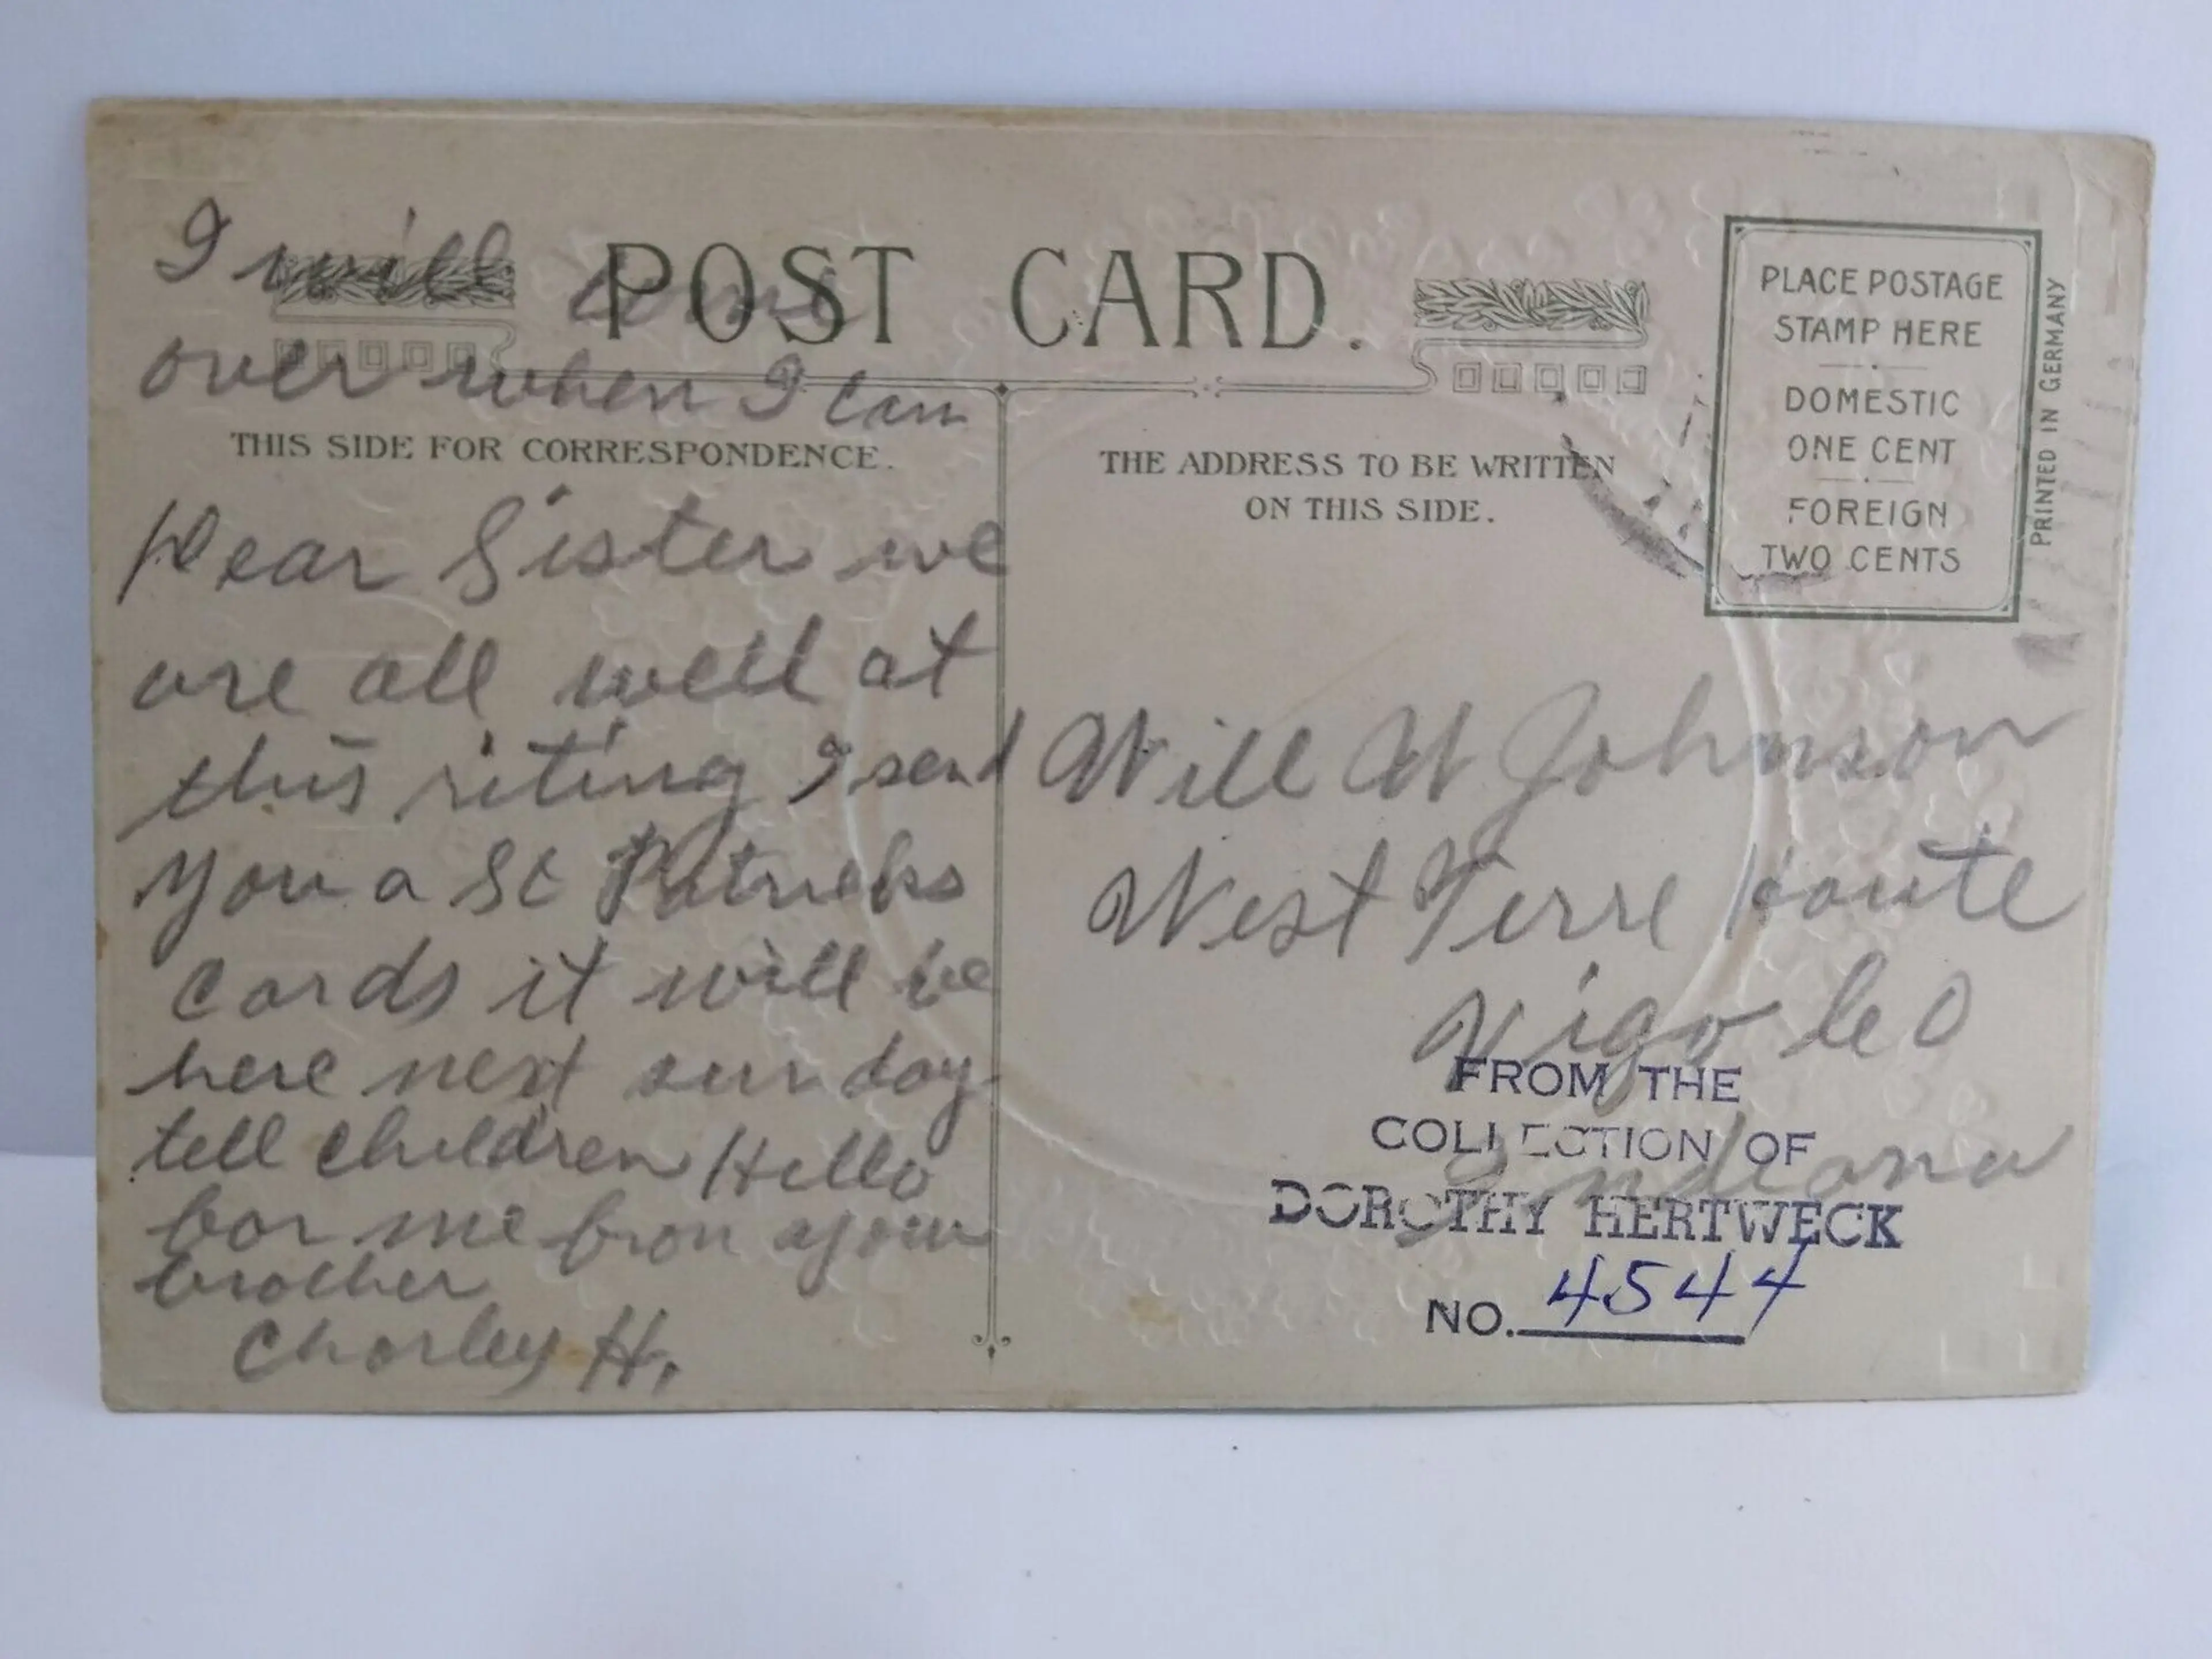 I will come
POST CARD.
over when I can
THIS SIDE FOR CORRESPONDENCE.
Dear Sister we
are all well at
this riting I send
you a St Patricks
cards it will be
here next sunday
tell children Hello
for me from your
brother
Charley H.
PLACE POSTAGE
STAMP HERE
DOMESTIC
ONE CENT
FOREIGN
TWO CENTS
PRINTED IN GERMANY
THE ADDRESS TO BE WRITTEN
ON THIS SIDE.
Will W Johnson
West Terre Haute
Vigo Co
Indiana
FROM THE
COLLECTION OF
DOROTHY HERTWECK
NO. 4544